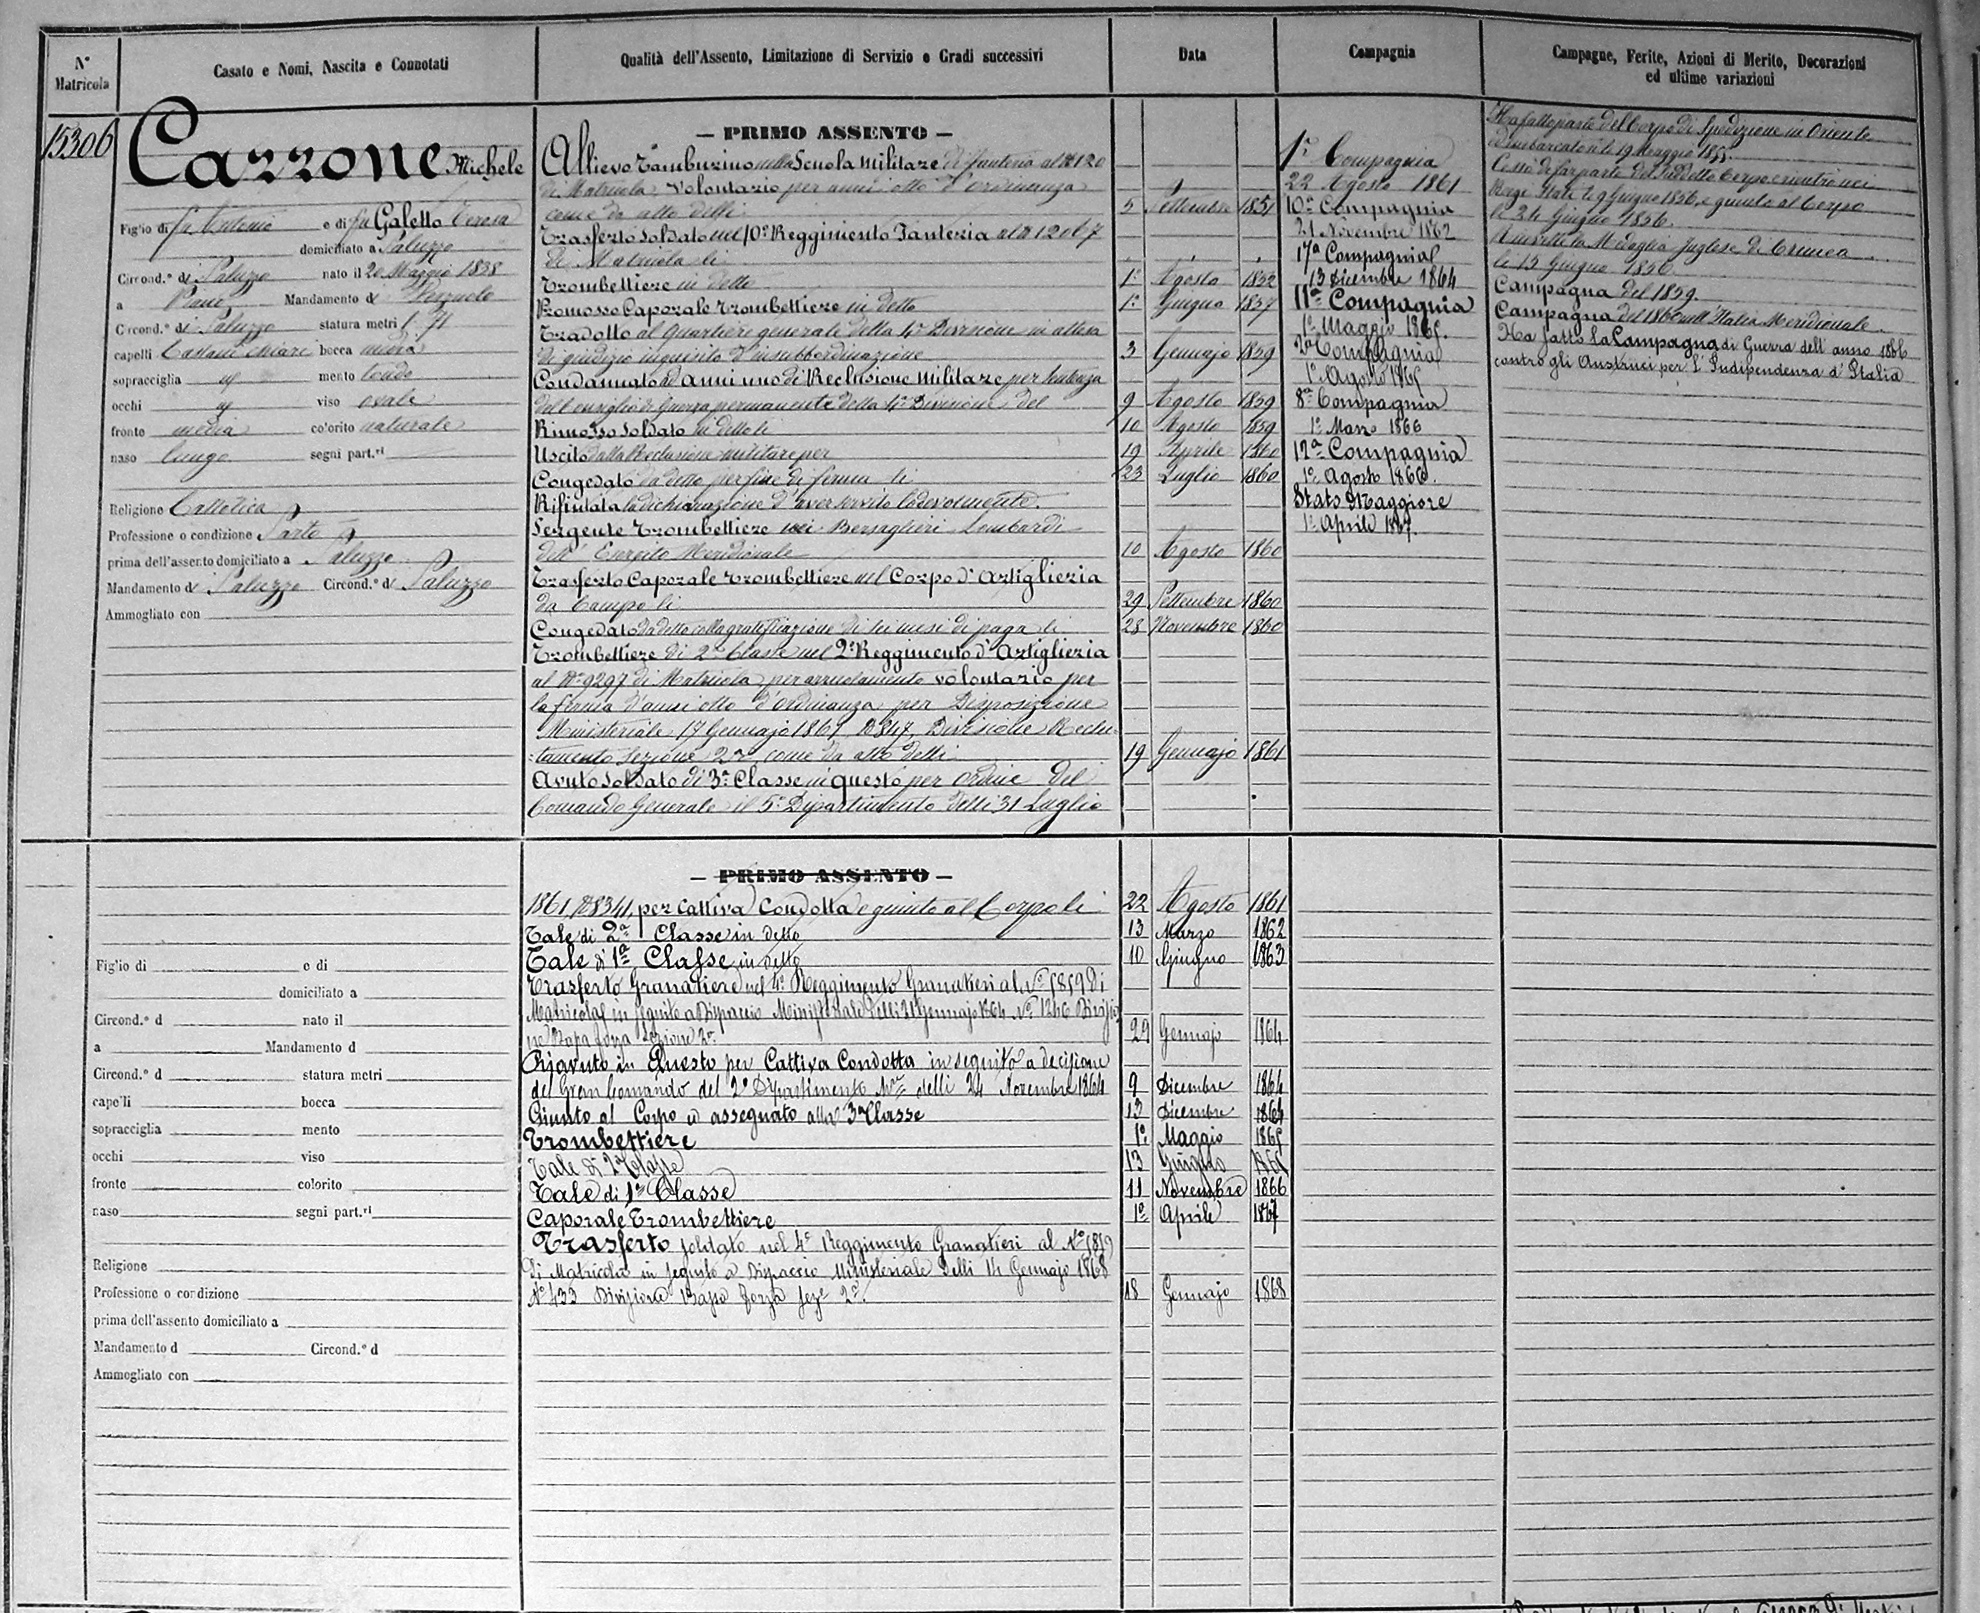 N° Matricola
Casato e Nomi, Nascita e Connotati
Qualità dell'Assento, Limitazione di Servizio e Gradi successivi
Data
Compagnia
Campagne, Ferite, Azioni di Merito, Decorazioni
ed ultime variazioni
15306
Carrone Michele
Figlio di fu Antonio e di fu Galetto Teresa
domiciliato a Saluzzo
Circond.° di Saluzzo nato il 20 Maggio 1838
a Mandamento di
Circond.° di Saluzzo statura metri 1.71
capelli Castani chiari bocca media
sopracciglia id mento tondo
occhi id viso ovale
fronte media colorito naturale
naso lungo segni part.ri
Religione Cattolica
Professione o condizione Sarto
prima dell'assento domiciliato a Saluzzo
Mandamento di Saluzzo Circond.° di Saluzzo
Ammogliato con
— PRIMO ASSENTO —
Allievo Tamburino nella Scuola Militare di fanteria al N° 120
di Matricola, Volontario per anni otto d'ordinanza
come da atto delli 5 Settembre 1851
Trasferto Soldato nel 10° Reggimento Fanteria al N° 12067
di Matricola li
Trombettiere in detto 1° Agosto 1852
Promosso Caporale Trombettiere in detto 1° Giugno 1857
Tradotto al Quartiere generale della 4a Divisione in attesa
di giudizio inquisito d'insubbordinazione 3 Gennajo 1859
Condannato ad anni uno di Reclusione Militare per sentenza
del Consiglio di Guerra permanente della 4a Divisione del 9 Agosto 1859
Rimosso Soldato in detto li 10 Agosto 1859
Uscito dalla Reclusione militare per 19 Aprile 1860
Congedato da detto per fine di ferma li 23 Luglio 1860
Rifiutata la dichiarazione d'aver servito lodevolmente.
Sergente Trombettiere nei Bersaglieri Lombardi
dell' Esercito Meridionale 10 Agosto 1860
Trasferto Caporale Trombettiere nel Corpo d'Artiglieria
da Campo li 29 Settembre 1860
Congedato da detto colla gratificazione di sei mesi di paga li 28 Novembre 1860
Trombettiere di 2a Classe nel 2° Reggimento d'Artiglieria
al N° 9297 di Matricola, per arruolamento volontario per
la ferma d'anni otto d'ordinanza per Disposizione
Ministeriale 17 Gennajo 1861 N° 847, Divisione Reclu-
-tamento Sezione 2a, come da atto delli 19 Gennajo 1861
Avuto Soldato di 3a Classe in questo per ordine del
Comando Generale il 5° Dipartimento delli 31 Luglio
1a Compagnia
22 Agosto 1861
10a Compagnia
21 Novembre 1862
17a Compagnia
13 Dicembre 1864
11a Compagnia
1° Maggio 1865.
2a Compagnia
1° Agosto 1865
8a Compagnia
1° Marzo 1866
12a Compagnia
1° Agosto 1866.
Stato Maggiore
1° Aprile 1867.
Ha fatto parte del Corpo di Spedizione in Oriente
ed imbarcato li 19 Maggio 1855.
Cessò di far parte del suddetto Corpo e rientrò nei
Regi Stati li 9 Giugno 1856, e giunto al Corpo
li 24 Giugno 1856.
Ricevette la Medaglia Inglese di Crimea
li 15 Giugno 1856
Campagna del 1859.
Campagna del 1860 nell'Italia Meridionale.
Ha fatto la Campagna di Guerra dell'anno 1866
contro gli Austriaci per l'Indipendenza d'Italia
— PRIMO ASSENTO —
1861, N° 8341, per Cattiva Condotta e giunto al Corpo li 22 Agosto 1861
Tale di 2a Classe in detto 13 Marzo 1862
Tale di 1a Classe in detto 10 Giugno 1863
Trasferto Granatiere nel 4° Reggimento Granatieri al N° 5859 di
Matricola in seguito a Dispaccio Ministeriale delli 21 Gennajo 1864 N° 1246 Divisio
ne Bassa forza Sezione 2a 29 Gennajo 1864
Riavuto in Questo per Cattiva Condotta in seguito a decisione
del Gran Comando del 2° Dipartimento Mre delli 24 Novembre 1864 9 Dicembre 1864
Giunto al Corpo ed assegnato alla 3a Classe 13 Dicembre 1864
Trombettiere 1° Maggio 1865
Tale di 2a Classe 13 Giugno 1865
Tale di 1a Classe 11 Novembre 1866
Caporale Trombettiere 1° Aprile 1867
Trasferto soldato nel 4° Reggimento Granatieri al N° 5859
di Matricola in seguito a Dispaccio Ministeriale delli 14 Gennajo 1868
N° 433 Divisione Bassa forza Seze 2a. 18 Gennajo 1868
Figlio di e di
domiciliato a
Circond.° d nato il
a Mandamento d
Circond.° d statura metri
capelli bocca
sopracciglia mento
occhi viso
fronte colorito
naso segni part.ri
Religione
Professione o condizione
prima dell'assento domiciliato a
Mandamento d Circond.° d
Ammogliato con